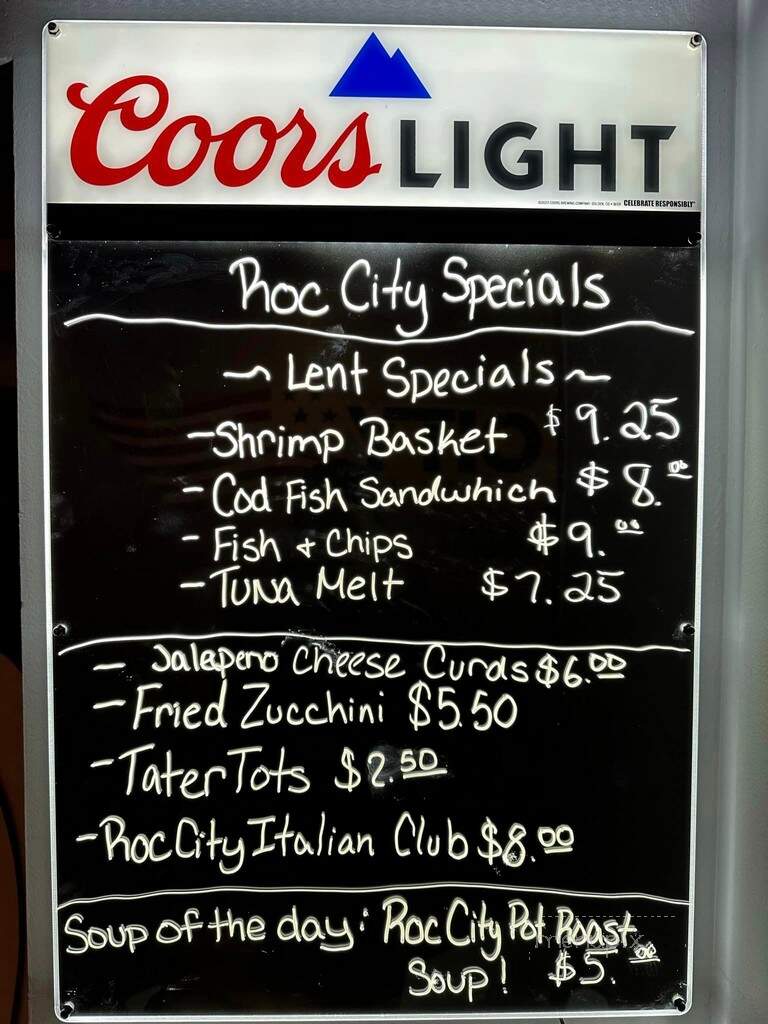 Coors LIGHT
CELEBRATE RESPONSIBLY
Roc City Specials
~ Lent Specials ~
- Shrimp Basket $9.25
- Cod Fish Sandwhich $8.00
- Fish & Chips $9.00
- Tuna Melt $7.25
- Jalapeno Cheese Curds $6.00
- Fried Zucchini $5.50
- Tater Tots $2.50
- Roc City Italian Club $8.00
Soup of the day: Roc City Pot Roast
Soup! $5.00